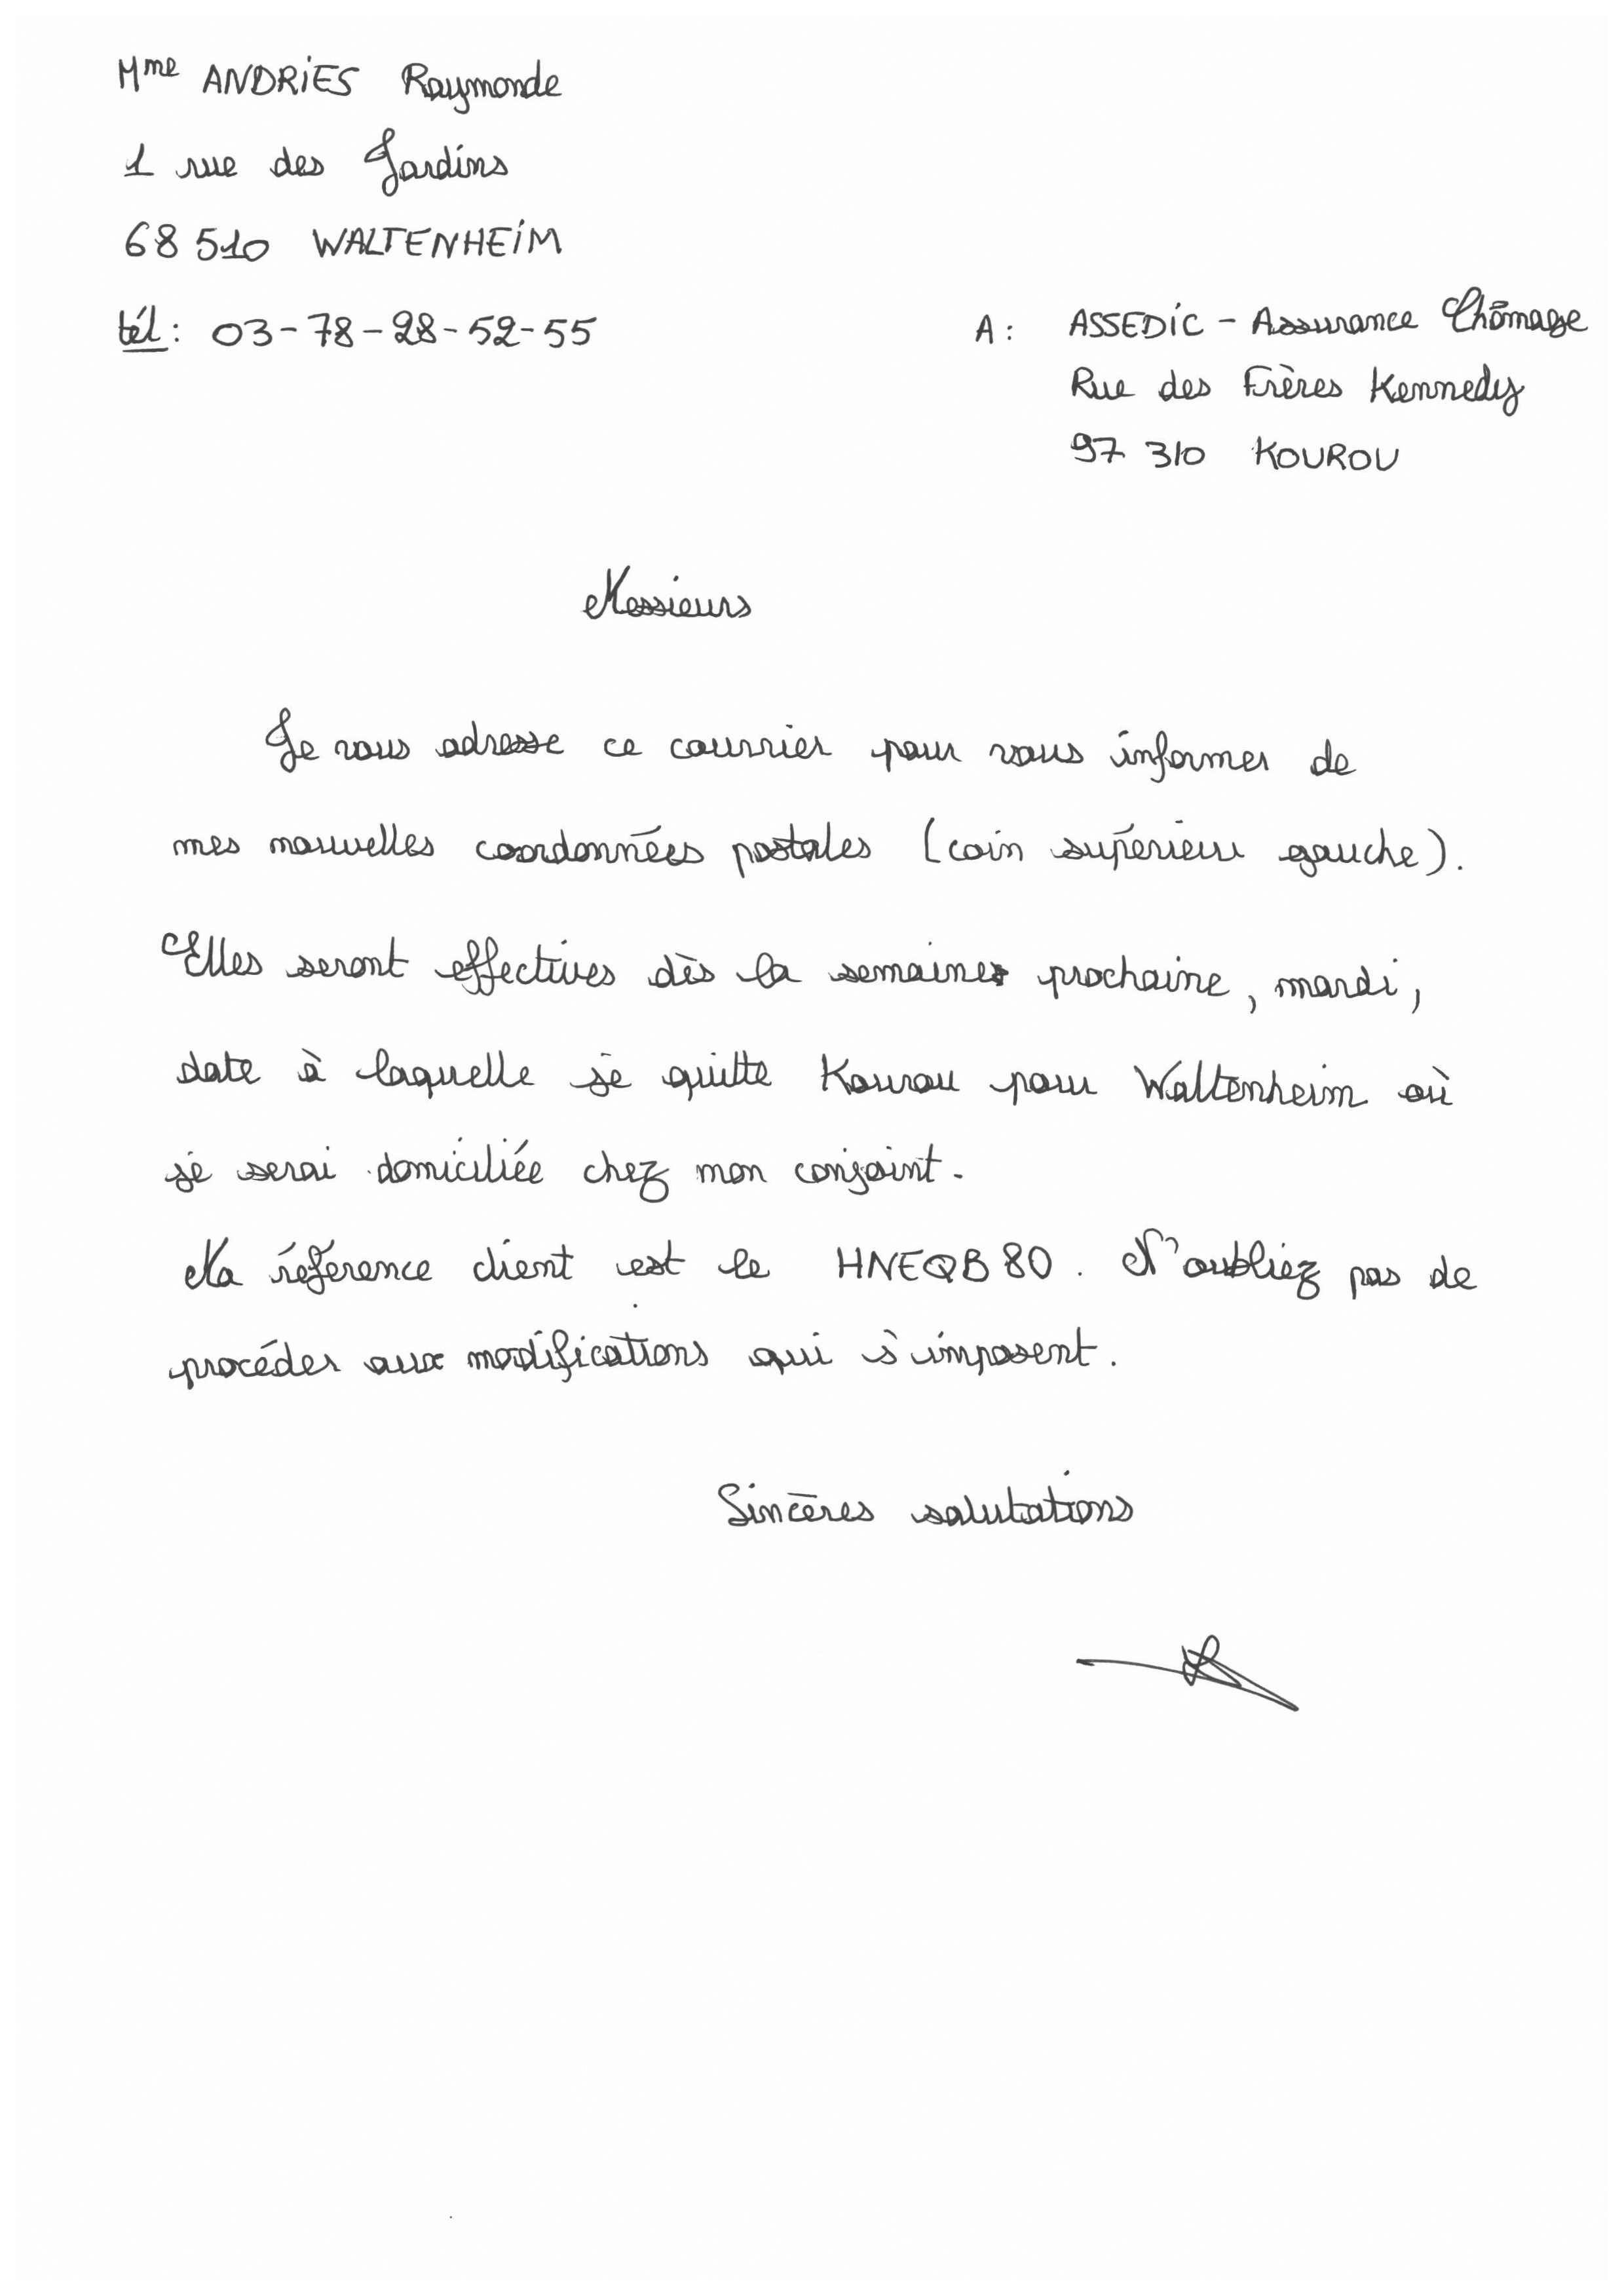 Mme ANDRIES Raymonde
1 rue des Jardins
68 510 WALTENHEIM
tél : 03-78-28-52-55
A : ASSEDIC - Assurance Chômage
Rue des Frères Kennedy
97 310 KOUROU
Messieurs
Je vous adresse ce courrier pour vous informer de
mes nouvelles coordonnées postales (coin supérieur gauche).
Elles seront effectives dès la semaine prochaine, mardi,
date à laquelle je quitte Kourou pour Waltenheim où
je serai domiciliée chez mon conjoint.
Ma référence client est le HNEQB80. N'oubliez pas de
procéder aux modifications qui s'imposent.
Sincères salutations